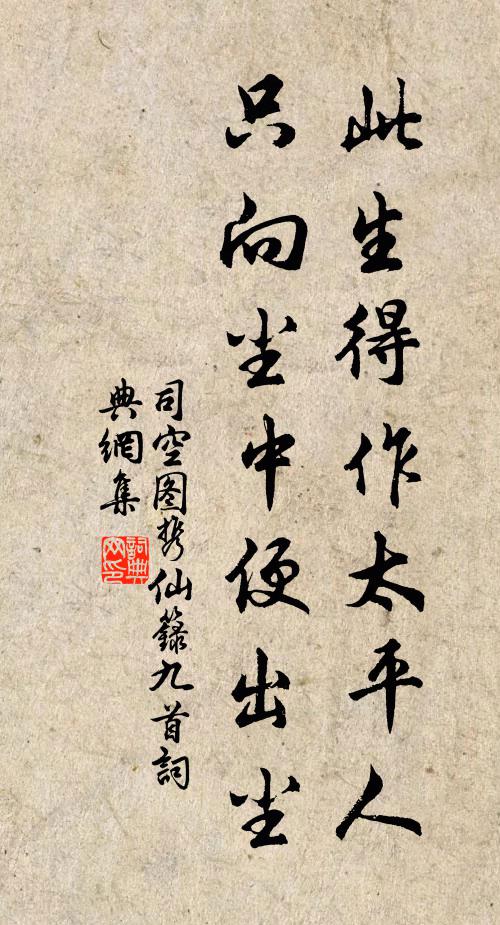 此生得作太平人
只向尘中便出尘
司空图携仙籙九首詞
典網集
詞典网印